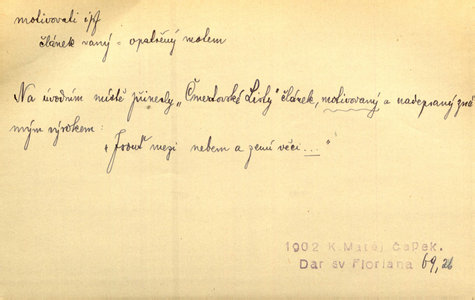 motivovati ipf
článek vaný = opatřený motem
Na úvodním místě přinesly „Čmertovské Listy" článek, motivovaný a nadepsaný zná-
mým výrokem:
„Jsouť mezi nebem a zemí věci..."
1902 K. Matěj Čapek.
Dar sv Floriana 69, 26